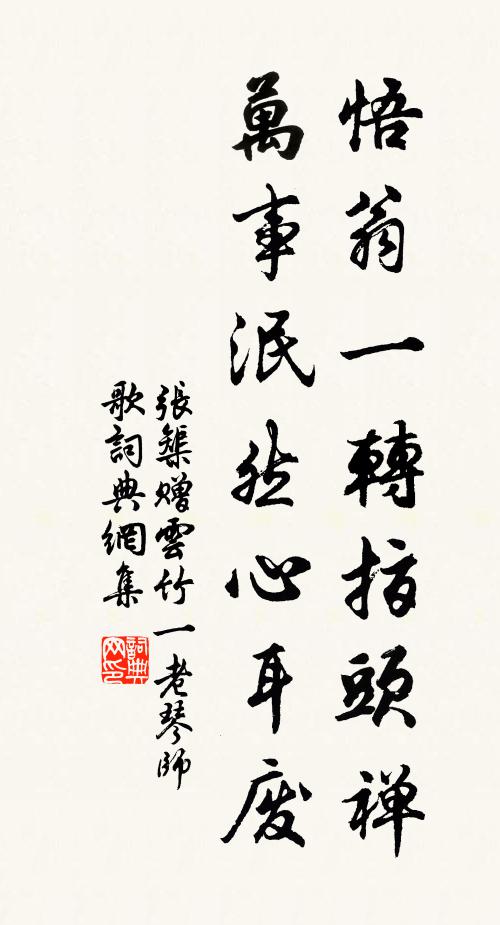 悟翁一轉指頭禅
萬事泯然心耳廢
張榘贈雲竹一老琴師
歌詞典網集
詞典网印